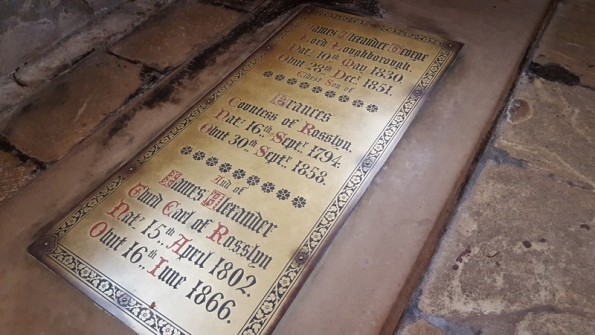 James Alexander George
Lord Loughborough.
Nat: 10th May 1830.
Obiit 28th Decr. 1851.
Eldest Son of
Frances
Countess of Rosslyn.
Nat: 16th Septr. 1794.
Obiit 30th Septr. 1858.
And of
James Alexander
Third Earl of Rosslyn
Nat: 15th April 1802.
Obiit 16th June 1866.